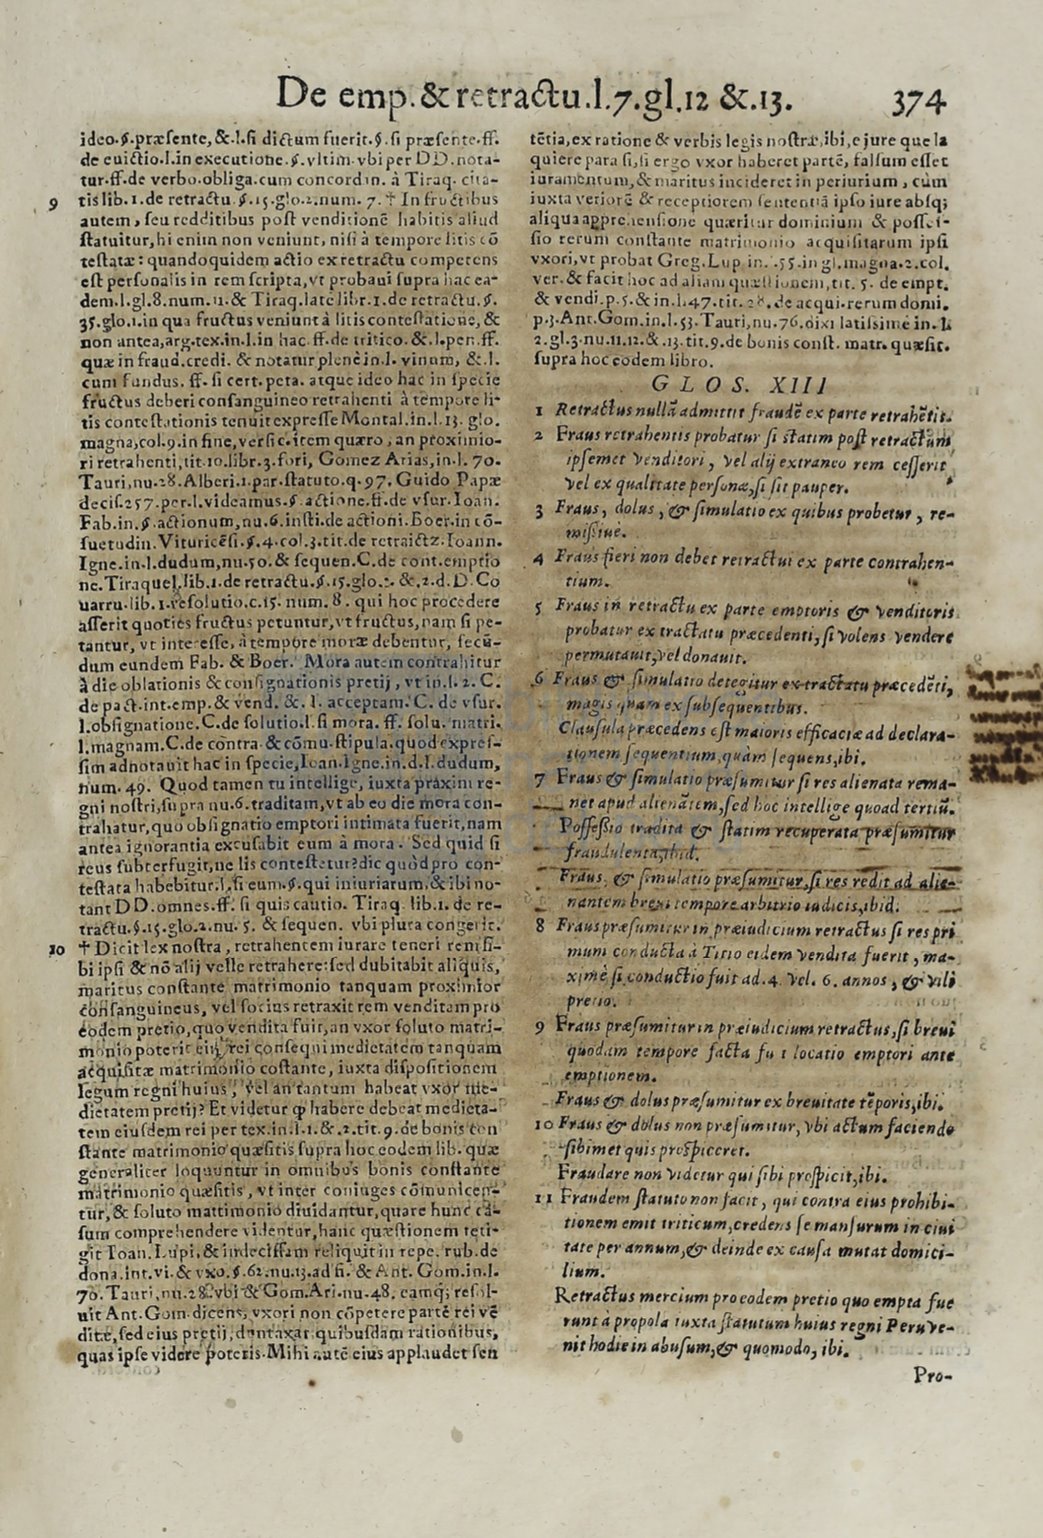 De emp. & retractu.l.7.gl.12 &.13. 374
ideo.§.præsente,&.l.si dictum fuerit.§.si præsente.ff.
de euictio.l.in executione.§.vltim.vbi per DD.nota-
tur.ff.de verbo.obliga.cum concordan. à Tiraq. cita-
9 tis lib.1.de retractu.§.15.glo.2.num. 7.† In fructibus
autem, seu redditibus post venditionē habitis aliud
statuitur,hi enim non veniunt, nisi à tempore litis cō
testatæ: quandoquidem actio ex retractu competens
est personalis in rem scripta,vt probaui supra hac ea-
dem.l.gl.8.num.11.& Tiraq.late libr.1.de retractu.§.
35.glo.1.in qua fructus veniunt à litis contestatione,&
non antea,arg.tex.in.l.in hac.ff.de tritico.&.l.pen.ff.
quæ in fraud.credi. & notatur plenè in.l. vinum, &.l.
cum fundus. ff. si cert.peta. atque ideo hac in specie
fructus deberi consanguineo retrahenti à tempore li-
tis contestationis tenuit expresse Montal.in.l.13. glo.
magna,col.9.in fine,versic.item quæro, an proximio-
ri retrahenti,tit.10.libr.3.fori, Gomez Arias,in.l. 70.
Tauri,nu.28.Alberi.1.par.statuto.q.97.Guido Papæ
decis.257.per.l.videamus.§.actione.ff.de vsur.Ioan.
Fab.in.§.actionum,nu.6.insti.de actioni.Boer.in cō-
suetudin.Vituricēsi.§.4.col.3.tit.de retraictz.Ioann.
Igne.in.l.dudum,nu.50.& sequen.C.de cont.emptio
ne.Tiraquel.lib.1.de retractu.§.15.glo.2. &.2.d.D.Co
uarru.lib.1.resolutio.c.15. num. 8. qui hoc procedere
asserit quoties fructus petuntur,vt fructus,nam si pe-
tantur, vt interesse, à tempore moræ debentur, secū-
dum eundem Fab. & Boer. Mora autem contrahitur
à die oblationis & consignationis pretij, vt in.l. 2. C.
de pact.int.emp.& vend. &. l. acceptam. C. de vsur.
l.obsignatione.C.de solutio.l.si mora. ff. solu. matri.
l.magnam.C.de contra.& cōmu.stipula.quod expres-
sim adnotauit hac in specie,Ioan.Igne.in.d.l.dudum,
num. 49. Quod tamen tu intellige, iuxta praxim re-
gni nostri,supra nu.6.traditam,vt ab eo die mora con-
trahatur,quo obsignatio emptori intimata fuerit,nam
antea ignorantia excusabit eum à mora. Sed quid si
reus subterfugit,ne lis contestetur?dic quòd pro con-
testata habebitur.l.si eum.§.qui iniuriarum.& ibi no-
tant DD.omnes.ff. si quis cautio. Tiraq. lib.1. de re-
tractu.§.15.glo.2.nu. 5. & sequen. vbi plura congerit.
10 † Dicit lex nostra, retrahentem iurare teneri rem si-
bi ipsi & nō alij velle retrahere:sed dubitabit aliquis,
maritus constante matrimonio tanquam proximior
consanguineus, vel socius retraxit rem venditam pro
eodem pretio,quo vendita fuit,an vxor soluto matri-
monio poterit eius rei consequi medietatem tanquam
acquisitæ matrimonio cōstante, iuxta dispositionem
legum regni huius, vel an tantum habeat vxor me-
dietatem pretij? Et videtur ꝙ habere debeat medieta-
tem eiusdem rei per tex.in.l.1.&.2.tit.9.de bonis con
stante matrimonio quæsitis supra hoc eodem lib. quæ
generaliter loquuntur in omnibus bonis constante
matrimonio quæsitis, vt inter coniuges cōmunicen-
tur,& soluto matrimonio diuidantur,quare hunc ca-
sum comprehendere videntur,hanc quæstionem teti-
git Ioan.Lupi.& indecissam reliquit in repe. rub.de
dona.int.vi.& vxo.§.62.nu.13.ad fi. & Ant. Gom.in.l.
70.Tauri,nu.28.vbi & Gom.Ari.nu.48. eamq; resol-
uit Ant.Gom.dicens, vxori non cōpetere partē rei vē
ditæ,sed eius pretij,duntaxat quibusdam rationibus,
quas ipse videre poteris.Mihi autē eius applaudet sen
tētia,ex ratione & verbis legis nostræ,ibi,e jure que la
quiere para si,si ergo vxor haberet partē, falsum esset
iuramentum,& maritus incideret in periurium, cùm
iuxta veriorē & receptiorem sententiā ipso iure absq;
aliqua apprehensione quæritur dominium & posses-
sio rerum constante matrimonio acquisitarum ipsi
vxori,vt probat Greg.Lup in. .55.in gl.magna.2.col.
ver.& facit hoc ad aliam quæstionem,tit. 5. de empt.
& vendi.p.5.& in.l.47.tit.28.de acqui.rerum domi.
p.3.Ant.Gom.in.l.53.Tauri,nu.76.dixi latissimè in.l.
2.gl.3.nu.11.12.&.13.tit.9.de bonis const. matr. quæsit.
supra hoc eodem libro.
GLOS. XIII
1 Retractus nullā admittit fraudē ex parte retrahētis.
2 Fraus retrahentis probatur si statim post retractum
ipsemet venditori, vel alij extraneo rem cesserit
vel ex qualitate personæ,si sit pauper.
3 Fraus, dolus, & simulatio ex quibus probetur, re-
missiuè.
4 Fraus fieri non debet retractui ex parte contrahen-
tium.
5 Fraus in retractu ex parte emptoris & venditoris
probatur ex tractatu præcedenti,si volens vendere
permutauit,vel donauit.
6 Fraus & simulatio detegitur ex tractatu præcedēti,
magis quam ex subsequentibus.
Clausula præcedens est maioris efficaciæ ad declara-
tionem sequentium,quàm sequens,ibi.
7 Fraus & simulatio præsumitur si res alienata rema-
net apud alienātem,sed hoc intellige quoad tertiū.
Possessio tradita & statim recuperata præsumitur
fraudulenta,ibid.
Fraus, & simulatio præsumitur,si res redit ad alie-
nantem breui tempore arbitrio iudicis,ibid.
8 Fraus præsumitur in præiudicium retractus si res pri
mum conducta à Titio eidem vendita fuerit, ma-
ximè si conductio fuit ad.4. vel. 6. annos, & vili
pretio.
9 Fraus præsumitur in præiudicium retractus,si breui
quodam tempore facta fu t locatio emptori ante
emptionem.
Fraus & dolus præsumitur ex breuitate tēporis,ibi.
10 Fraus & dolus non præsumitur, vbi actum faciendo
sibimet quis prospiceret.
Fraudare non videtur qui sibi prospicit,ibi.
11 Fraudem statuto non facit, qui contra eius prohibi-
tionem emit triticum,credens se mansurum in ciui
tate per annum,& deinde ex causa mutat domici-
lium.
Retractus mercium pro eodem pretio quo empta fue
runt à propola iuxta statutum huius regni Peru ve-
nit hodie in abusum,& quomodo, ibi.
Pro-